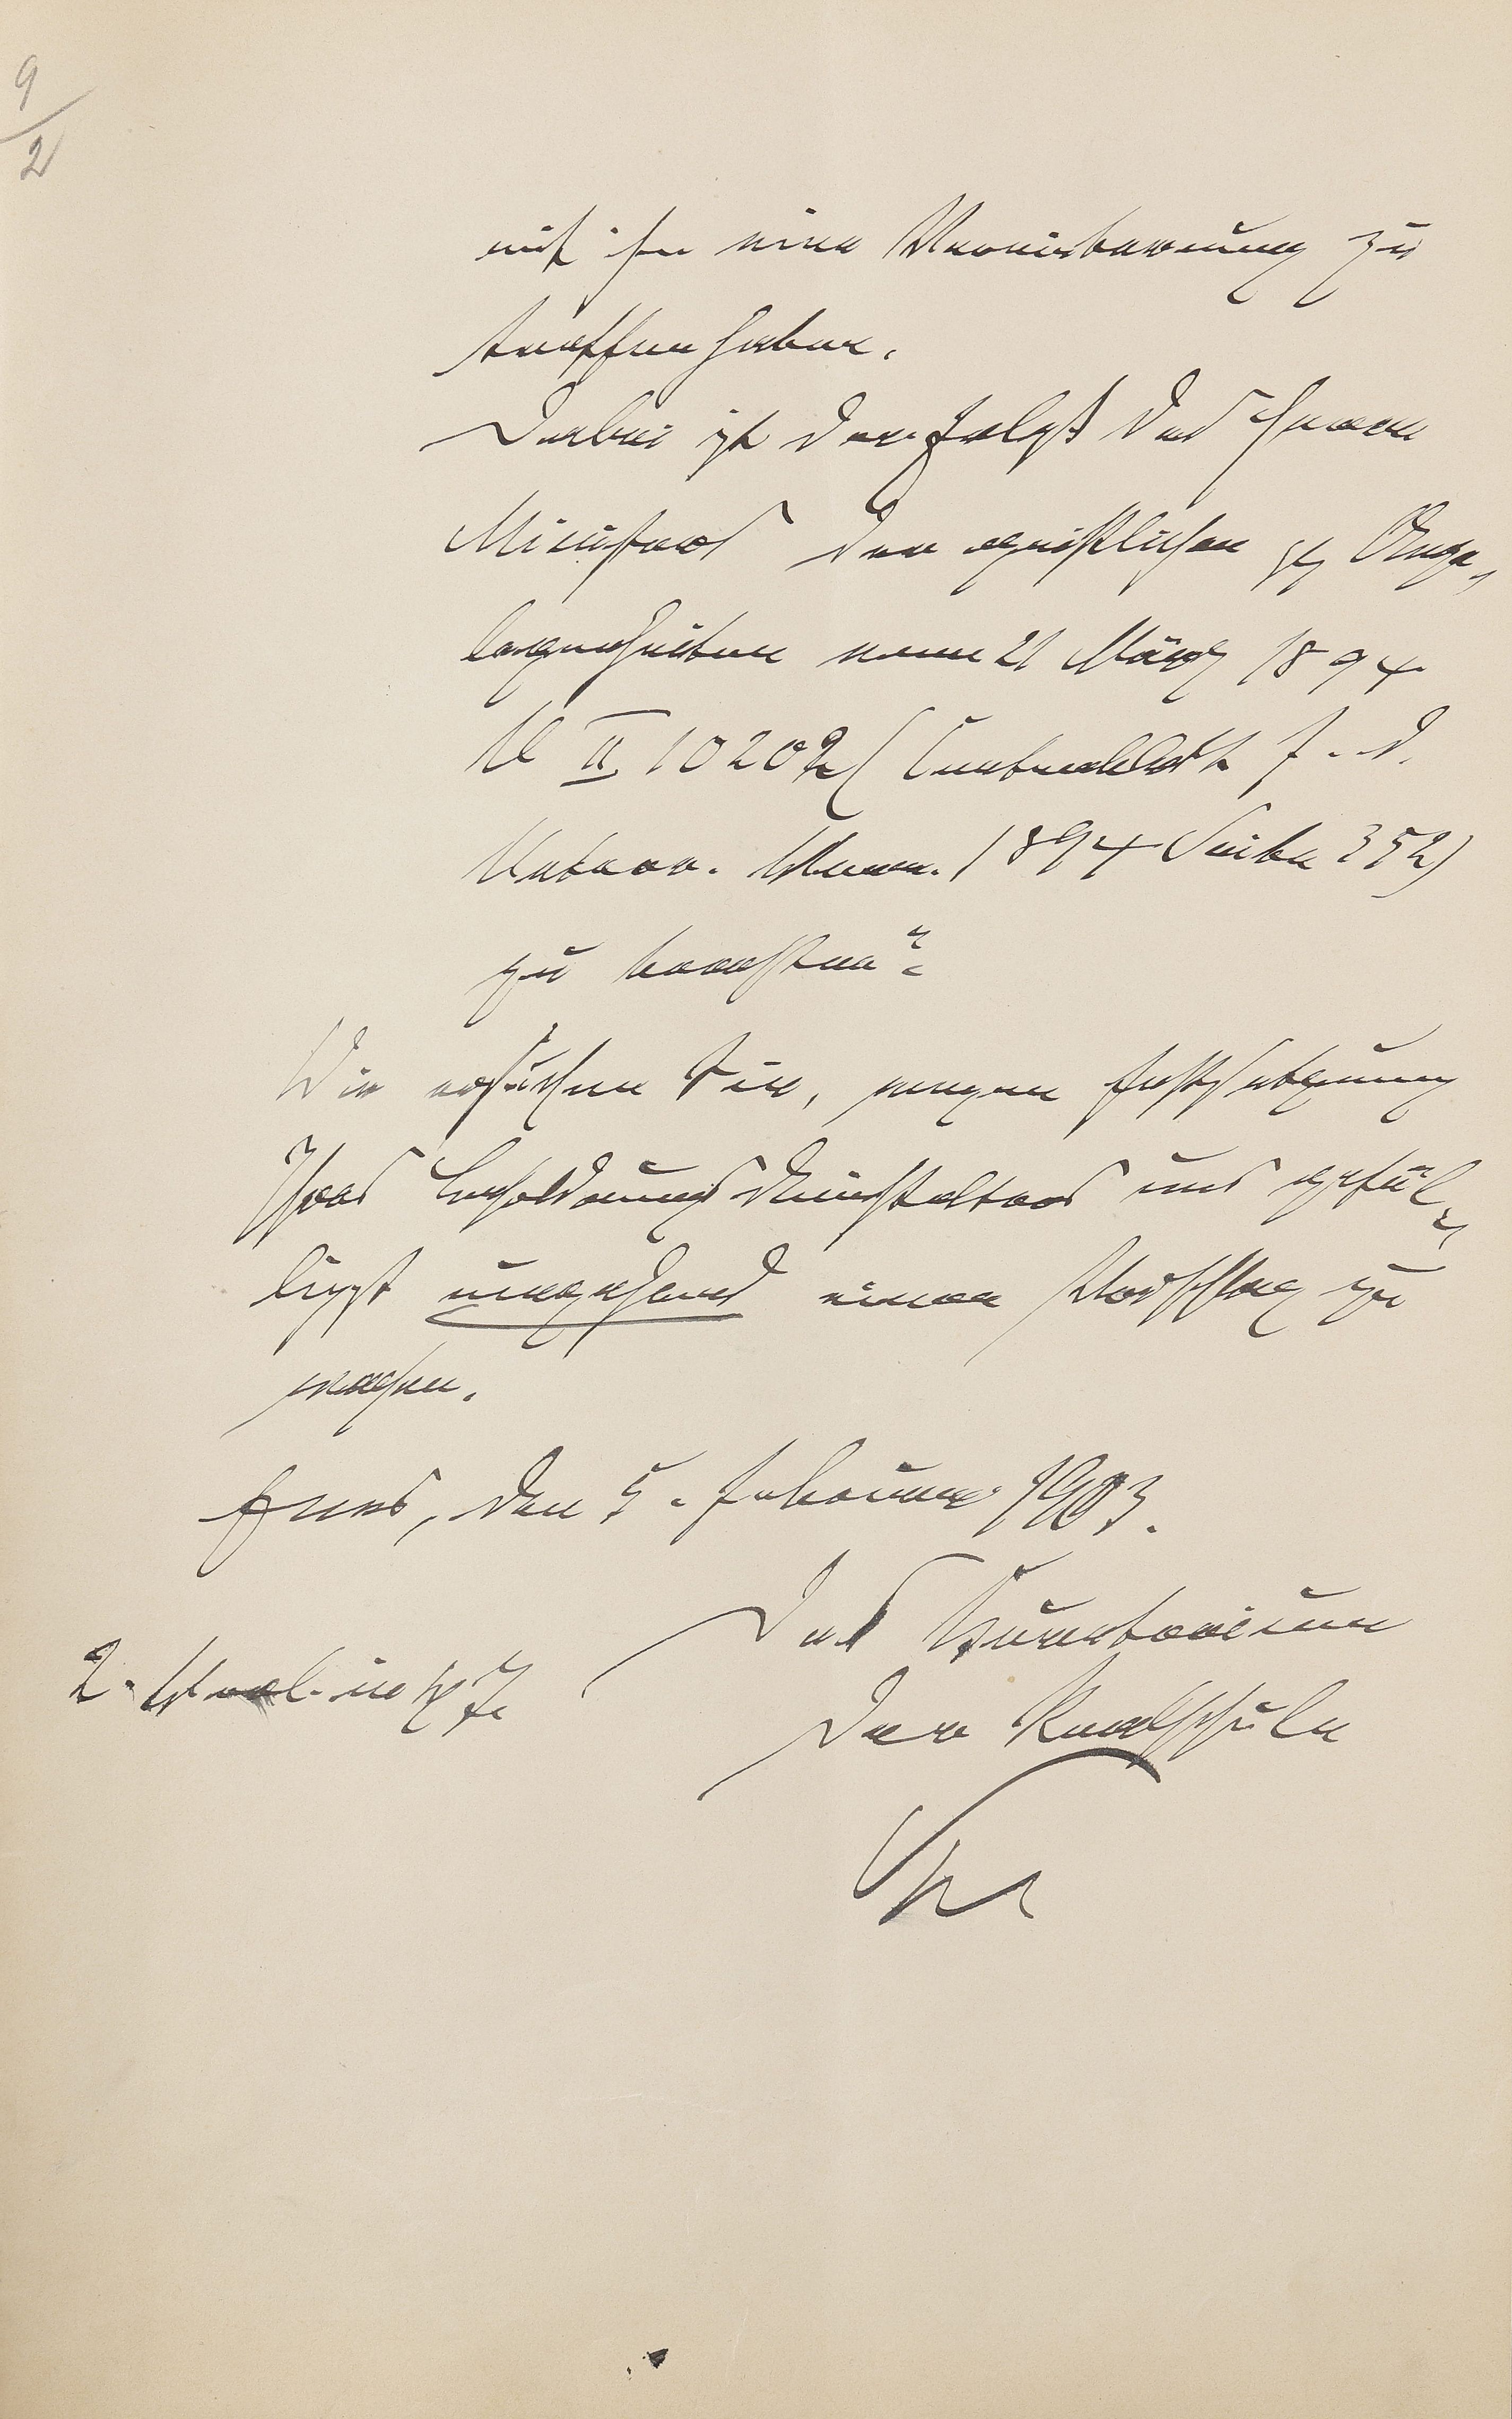 9/2
mit ihr eine Vereinbarung zu
treffen haben.
Dabei ist der Erlaß des Herrn
Ministers der geistlichen p. Ange-
legenheiten vom 21 März 1894
U II 10202 (Centralblatt f. d.
Unterr. Verw. 1894 Seite 352)
zu beachten
Wir ersuchen Sie, wegen Festsetzung
Ihres Besoldungsdienstalters uns gefäl-
ligst umgehend einen Vorschlag zu
machen.
Ems, den 5. Februar 1903.
Das Kuratorium
der Realschule
2.